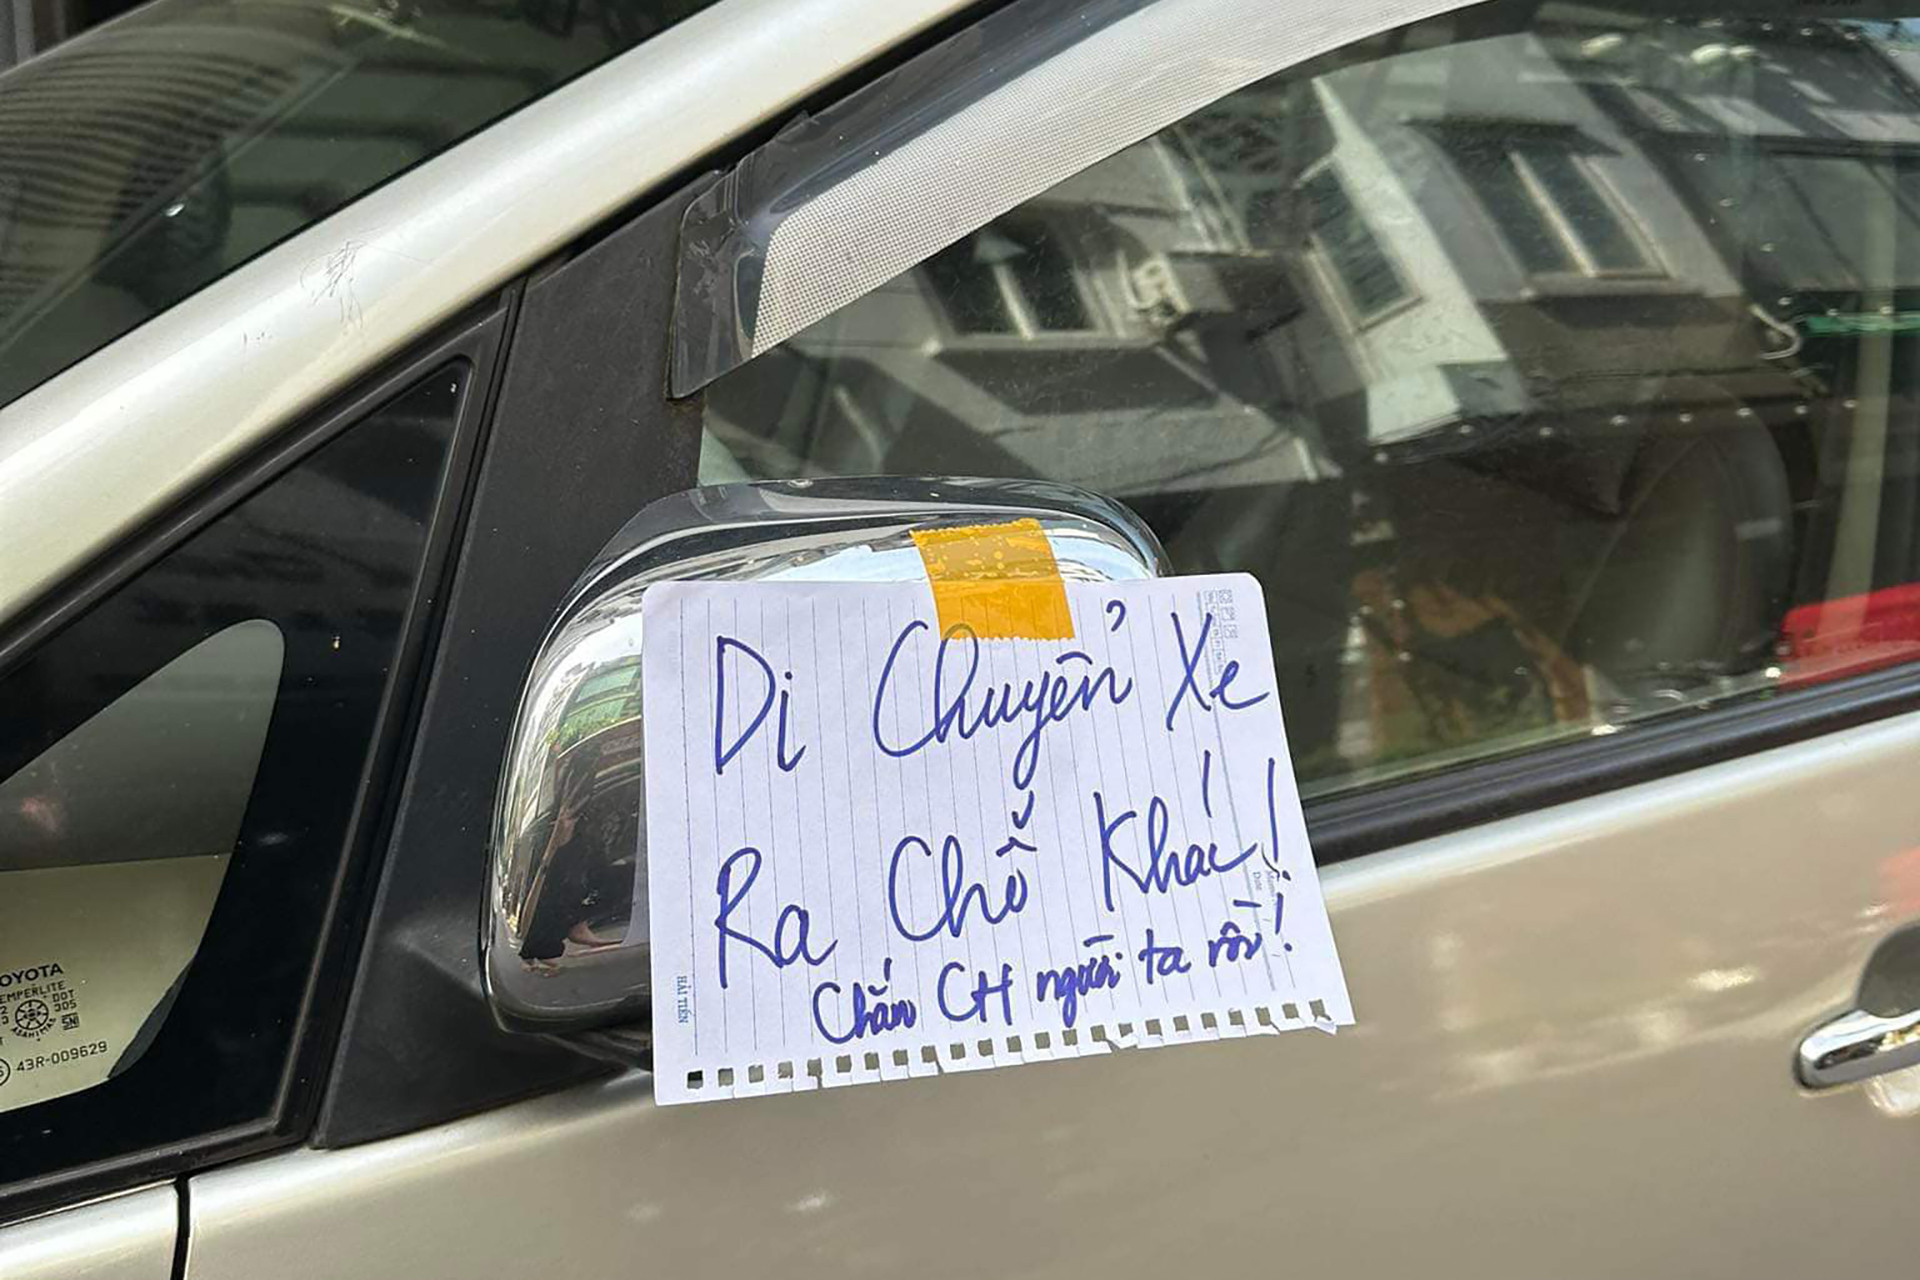 Di Chuyển Xe
Ra Chỗ Khác!
Chắn CH người ta rồi!
HẢI TIẾN
Date
TOYOTA
TEMPERLITE
DOT
305
ASAHIMAS
SNI
43R-009629